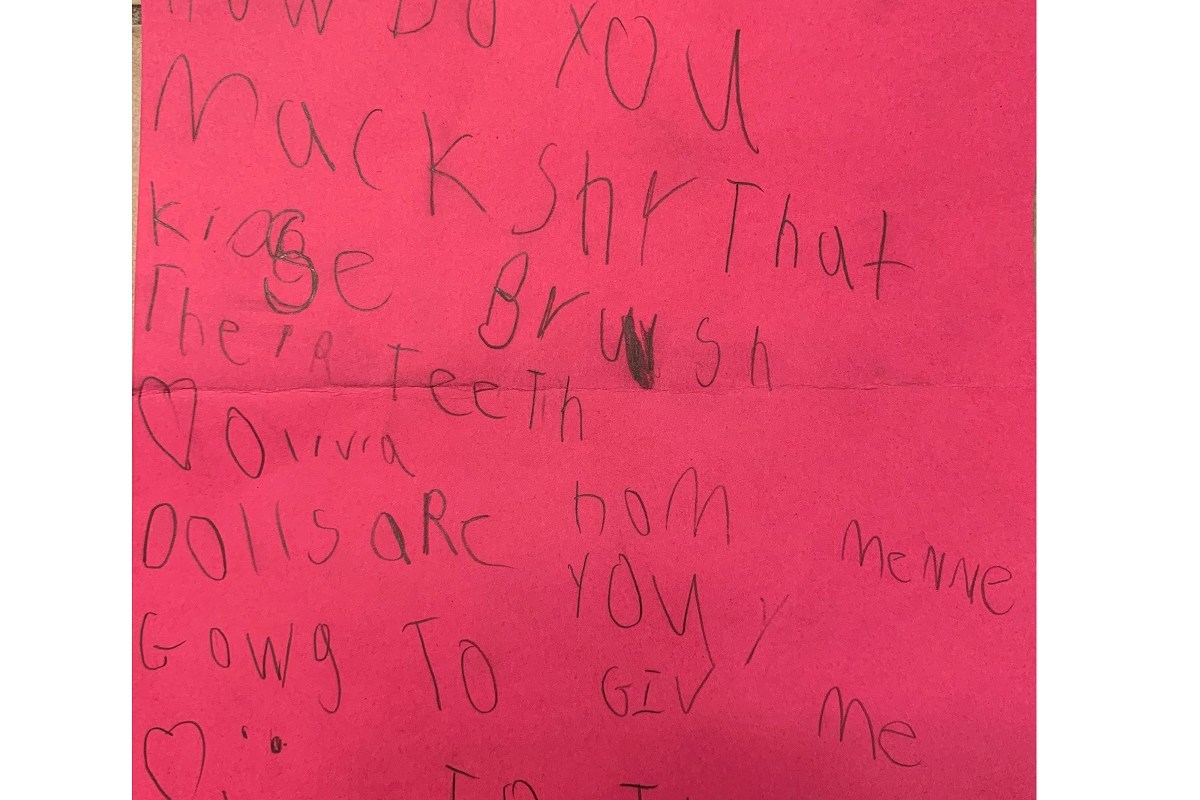 HOW DO YOU
Mack Shr That
Kidse Brush
Their Teeth
♡ Olivia
Dolls aRe hoM MeNNe
YOU
Gowg To GIV Me
♡
To